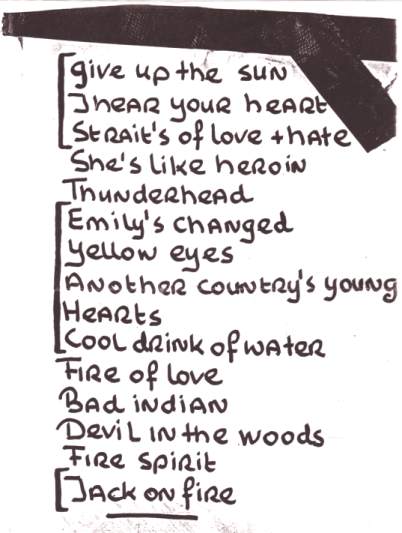 give up the sun
I hear your heart
Strait's of love + hate
She's like heroin
Thunderhead
Emily's changed
Yellow eyes
Another country's young
Hearts
Cool drink of water
Fire of love
Bad indian
Devil in the woods
Fire spirit
Jack on fire